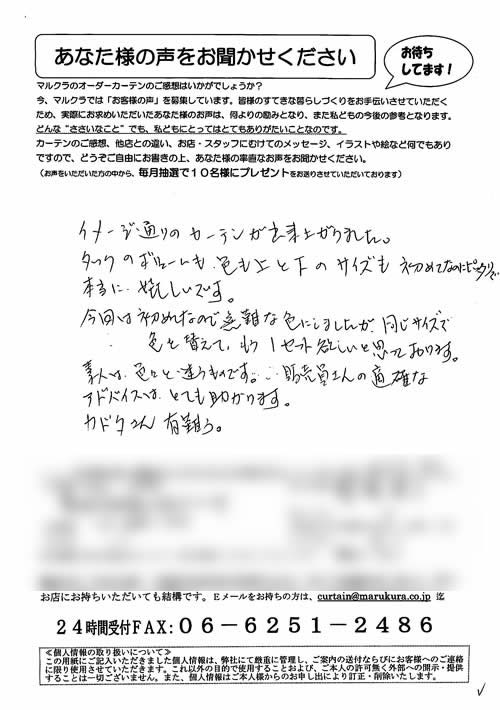 あなた様の声をお聞かせください
お待ち
してます!
マルクラのオーダーカーテンのご感想はいかがでしょうか?
今、マルクラでは「お客様の声」を募集しています。皆様のすてきな暮らしづくりをお手伝いさせていただく
ため、実際にお求めいただいたあなた様のお声は、何よりの励みとなり、また私どもの今後の参考となります。
どんな“ささいなこと”でも、私どもにとってはとてもありがたいことなのです。
カーテンのご感想、他店との違い、お店・スタッフにむけてのメッセージ、イラストや絵など何でもあり
ですので、どうぞご自由にお書きの上、あなた様の率直なお声をお聞かせください。
(お声をいただいた方の中から、毎月抽選で10名様にプレゼントをお送りさせていただいております)
イメージ通りのカーテンが出来上がりました。
タックのボリュームも色も上と下のサイズも初めてなのにピッタリで
本当に嬉しいです。
今回は初めてなので無難な色にしましたが、同じサイズで
色を替えて、もう1セット欲しいと思っております。
素人は色々と迷うものです。販売員さんの適確な
アドバイスはとても助かります。
カドタさん有難う。
お店にお持ちいただいても結構です。Eメールをお持ちの方は、curtain@marukura.co.jp 迄
24時間受付FAX:06-6251-2486
≪個人情報の取り扱いについて≫
この用紙にご記入いただきました個人情報は、弊社にて厳重に管理し、ご案内の送付ならびにお客様へのご連絡
に限り使用させていただきます。これ以外の目的で使用することおよび、ご本人の許可無く外部への開示・提供
することは一切ございません。また、個人情報はご本人様からのお申し出により訂正・削除いたします。